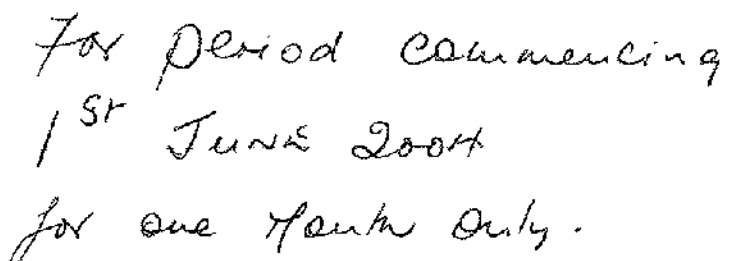 For period commencing
1st June 2004
for one Month only.